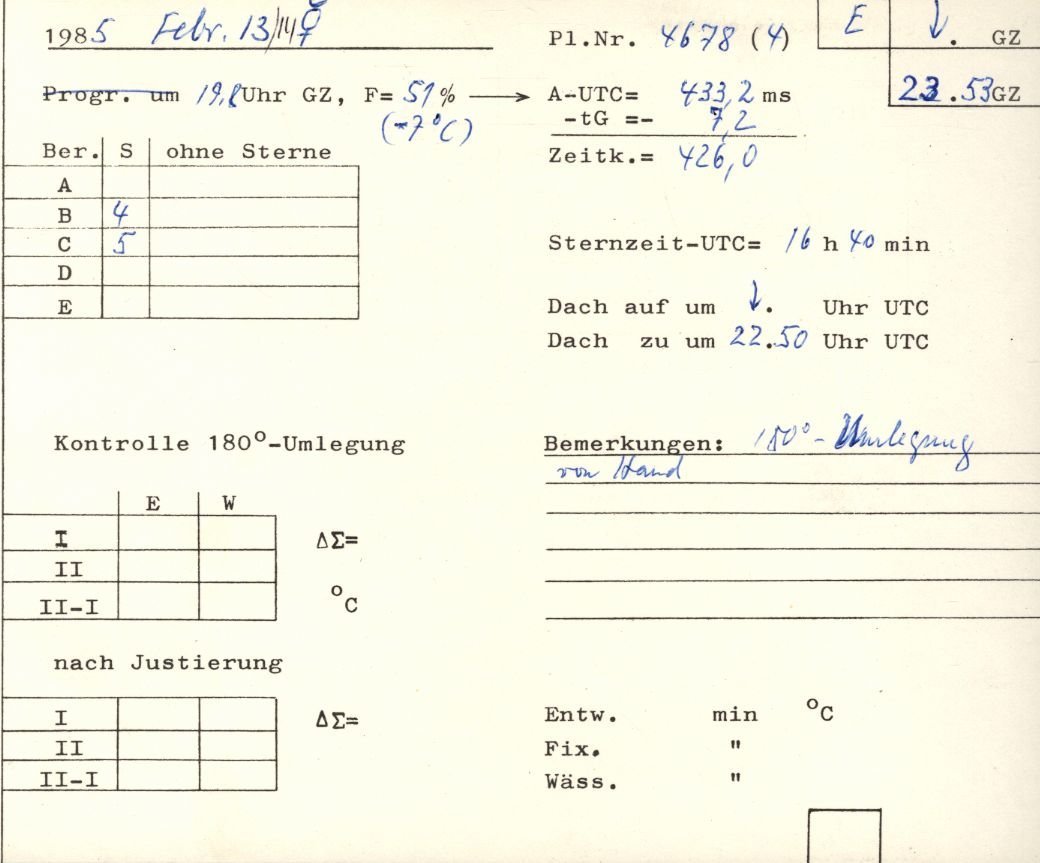 1985 Febr. 13/14 ♀
Pl.Nr. 4678 (4)
E ↓. GZ
23.53 GZ
Progr. um 19,8 Uhr GZ, F= 51 % → A-UTC= 433,2 ms
(-7°C) -tG =- 7,2
Zeitk.= 426,0
Ber. S ohne Sterne
A
B 4
C 5
D
E
Sternzeit-UTC= 16 h 40 min
Dach auf um ↓. Uhr UTC
Dach zu um 22.50 Uhr UTC
Kontrolle 180°-Umlegung
E W
I ΔΣ=
II
II-I °C
nach Justierung
I ΔΣ=
II
II-I
Bemerkungen: 180°-Umlegung
von Hand
Entw. min °C
Fix. "
Wäss. "